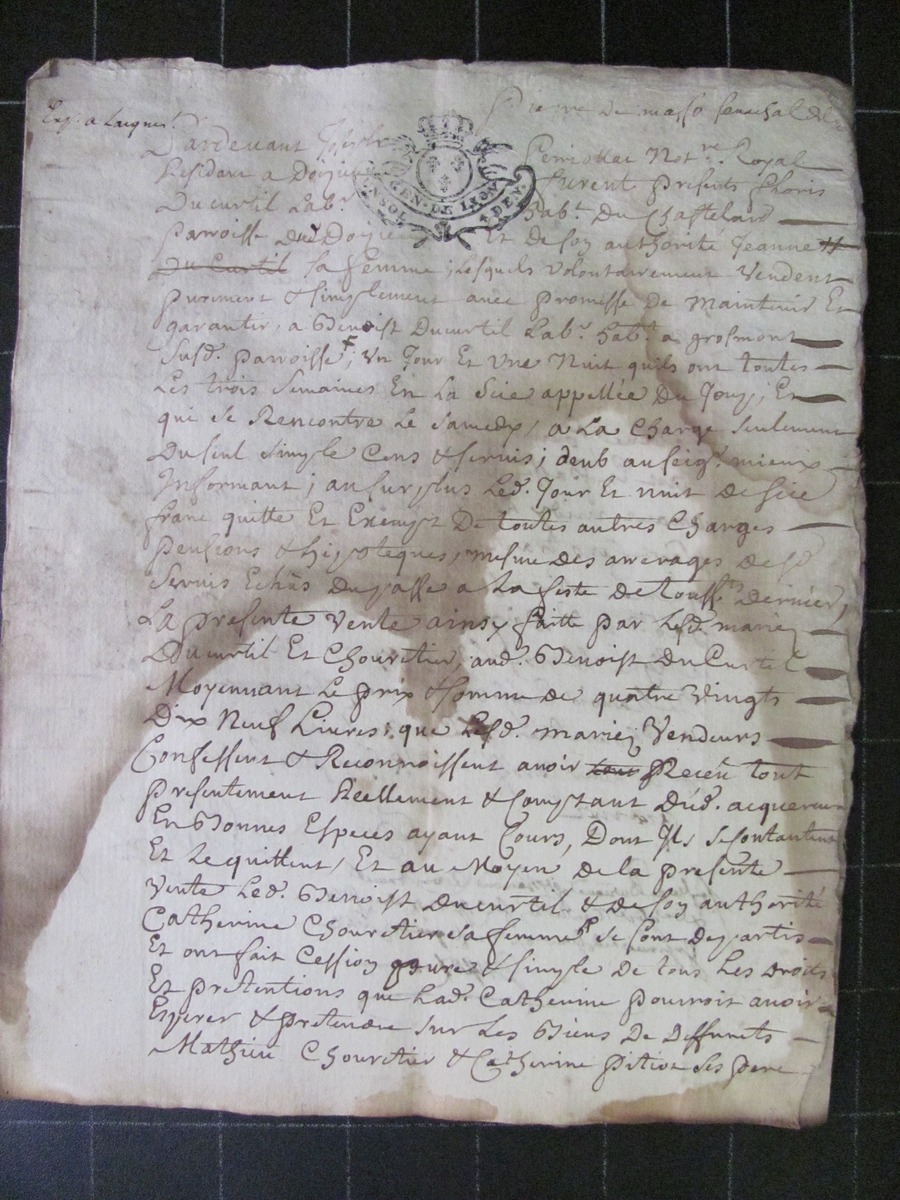 Exp. a Lacquer.
Pierre de masso senechal de
Pardevant Perrollac Not.re Royal
Residant a Doizieu furent presents floris
GEN. DE LYON
SOL
DEN.
Ducurtil Lab.r hab.t Du Chastelard
Parroisse dud Doizieu Et de soy authorité Jeanne #
Du Curtil sa femme, lesquels volontairement Vendent
purement & simplement avec promesse de maintenir Et
garantir, a Benoist Ducurtil Lab.r hab.t a grosmont
susd. parroisse, Un Jour Et Une Nuit quils ont toutes
Les trois semaines En La Scie appellée Du Jouz, Et
qui se Rencontre Le samedy, a La Charge seulement
Du seul simple Cens & servis, deub au seig.r mieux
Informant, au surplus Led. Jour Et nuit de scie
franc quitte Et Exempt De toutes autres Charges
pensions & hipoteques, mesme des arrerages de sd
servis Echûs du passé a La feste de touss.ts Dernier,
La presente Vente ainsy faitte par Lesd. mariez
Ducurtil Et Chouretier, aud. Benoist Du Curtil
Moyennant Le prix & somme de quatre Vingts
Dix Neuf Livres, que Lesd. mariez Vendeurs
Confessent & Reconnoissent avoir tout Receu tout
presentement Reellement & comptant Dud. acquereur
En Bonnes Especes ayant Cours, Dont Ils se contantent
Et Le quittent, Et au Moyen de la presente
Vente Led. Benoist Ducurtil & de soy authorité
Catherine Chouretier sa femme se sont departis
Et ont fait Cession pure & simple de tous Les droits
Et pretentions que Lad. Catherine pourroit avoir
Esperer & pretendre sur Les Biens De Deffunts
Mathieu Chouretier & Catherine Pitiot ses pere